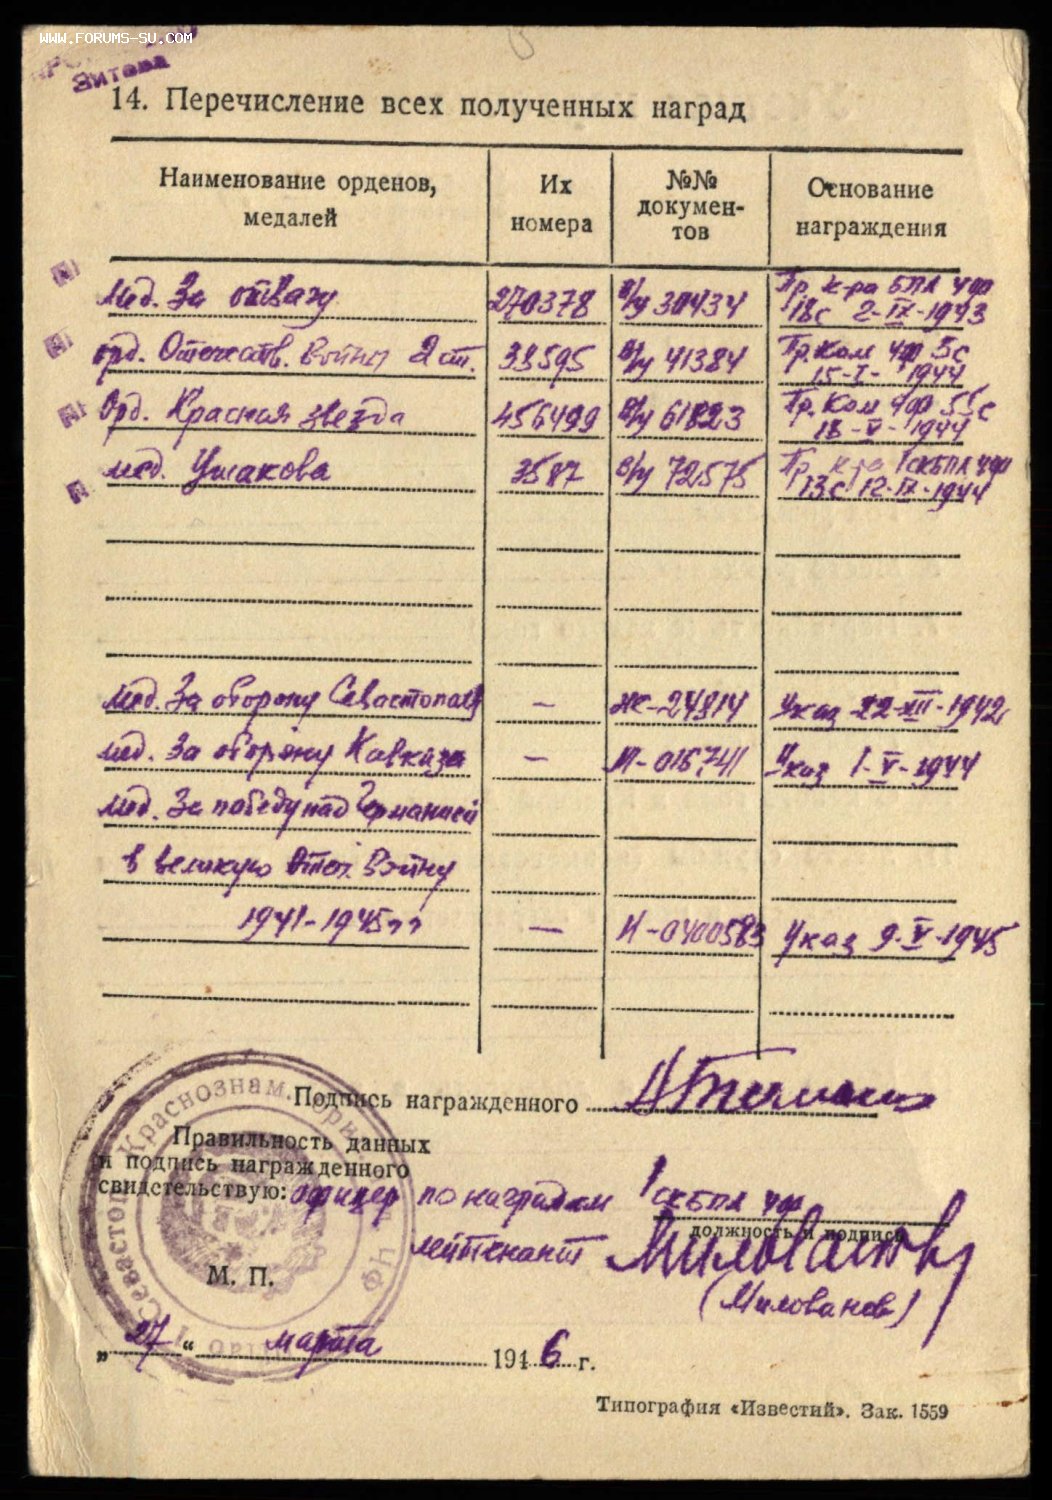 WWW.FORUMS-SU.COM
14. Перечисление всех полученных наград
Наименование орденов, медалей
Их номера
№№ докумен-тов
Основание награждения
мед. За отвагу 270378 в/у 30434 Пр. к-ра БПЛ ЧФ 18с 2-IX-1943
орд. Отечеств. войны 2 ст. 38595 в/у 41384 Пр. Ком ЧФ 5с 15-I-1944
Орд. Красная звезда 456499 в/у 61823 Пр. Ком ЧФ 55с 18-V-1944
мед. Ушакова 3587 в/у 72575 Пр. к-ра 1СКБПЛ ЧФ 13с 12-IX-1944
мед. За оборону Севастополя — Ж-24814 Указ 22-XII-1942
мед. За оборону Кавказа — М-016741 Указ 1-V-1944
мед. За победу над Германией
в великую Отеч. Войну
1941-1945гг — И-0400583 Указ 9-V-1945
Подпись награжденного
Правильность данных
и подпись награжденного
свидетельствую: офицер по наградам 1СКБПЛ ЧФ
должность и подпись
лейтенант Милованов
(Милованов)
М. П.
Севастоп Краснознам. ЧФ
„27“ марта 1946 г.
Типография «Известий». Зак. 1559